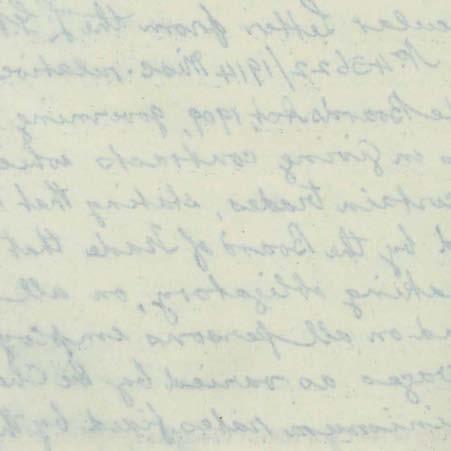 cular letter from the L.G
No 43622/1914 Misc. relative
e Boards Act, 1909, governing
in giving contracts
certain trades, stating that
d by the Board of Trade that
aking obligatory, on all
nd on all persons employ
wages as varied by
minimum rates fixed by th